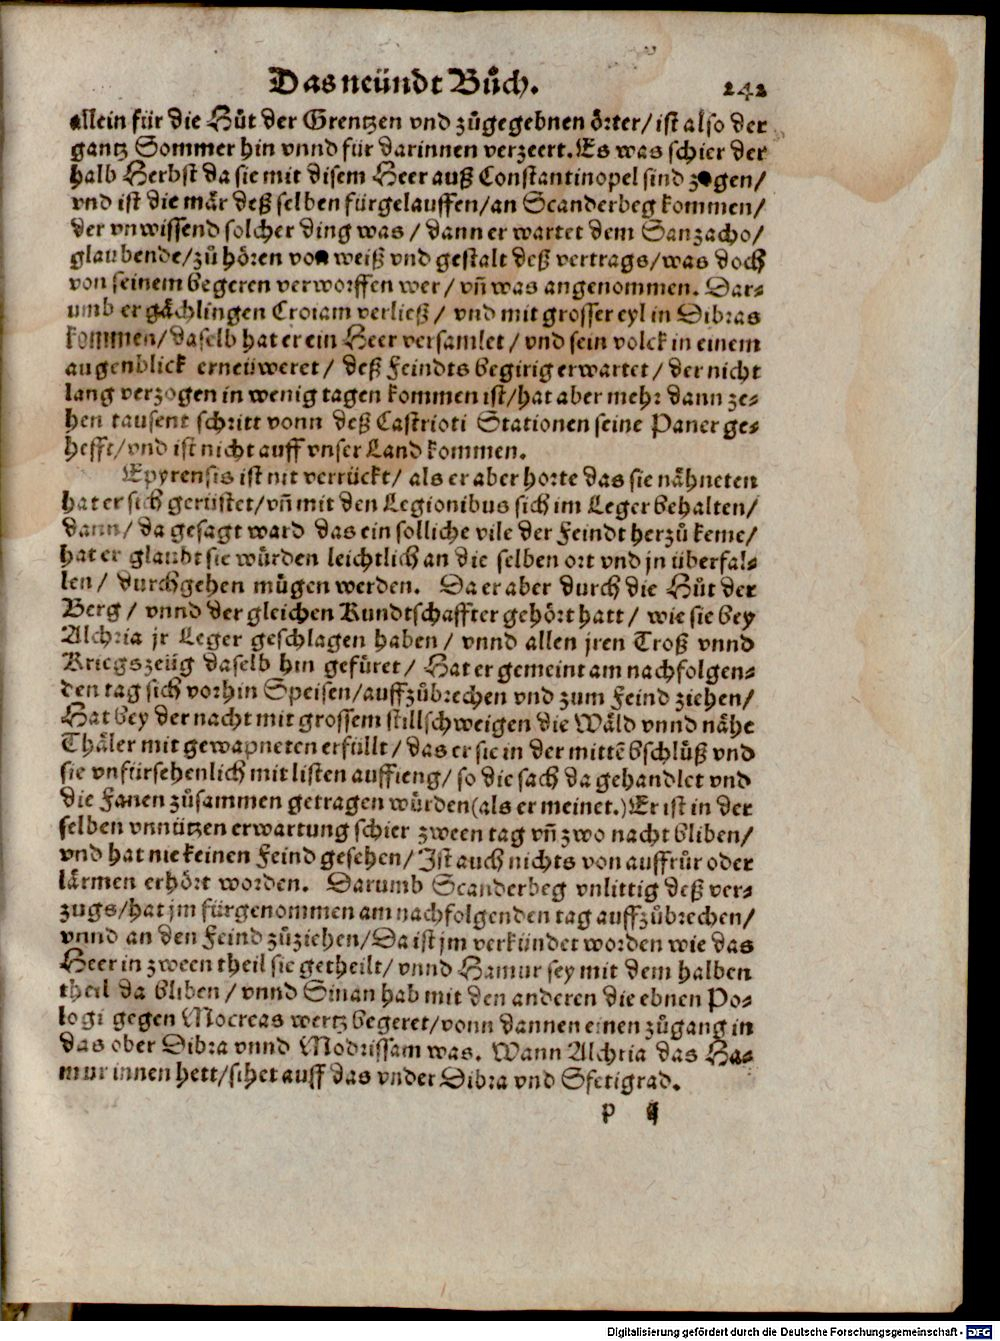 Das neündt Bůch. 242
allein für die Hůt der Grentzen vnd zůgegebnen örter/ ist also der
gantz Sommer hin vnnd für darinnen verzeert. Es was schier der
halb Herbst da sie mit disem Heer auß Constantinopel sind zogen/
vnd ist die mär deß selben fürgelauffen/ an Scanderbeg kommen/
der vnwissend solcher ding was/ dann er wartet dem Sanzacho/
glaubende/ zů hören von weiß vnd gestalt deß vertrags/ was doch
von seinem begeren verworffen wer/ vñ was angenommen. Dar-
umb er gächlingen Croiam verließ/ vnd mit grosser eyl in Dibras
kommen/ daselb hat er ein Heer versamlet/ vnd sein volck in einem
augenblick erneüweret/ deß Feindts begirig erwartet/ der nicht
lang verzogen in wenig tagen kommen ist/ hat aber mehr dann ze-
hen tausent schritt vonn deß Castrioti Stationen seine Paner ge-
hefft/ vnd ist nicht auff vnser Land kommen.
Epyrensis ist nit verrückt/ als er aber horte das sie nähneten
hat er sich gerüstet/ vñ mit den Legionibus sich im Leger behalten/
dann/ da gesagt ward das ein solliche vile der Feindt herzů keme/
hat er glaubt sie würden leichtlich an die selben ort vnd jn überfal-
len/ durchgehen mügen werden. Da er aber durch die Hůt der
Berg/ vnnd der gleichen Kundtschaffter gehört hatt/ wie sie bey
Alchria jr Leger geschlagen haben/ vnnd allen jren Troß vnnd
Kriegszeüg daselb hin gefüret/ Hat er gemeint am nachfolgen-
den tag sich vorhin Speisen/ auffzůbrechen vnd zum Feind ziehen/
Hat bey der nacht mit grossem stillschweigen die Wäld vnnd nähe
Thäler mit gewapneten erfüllt/ das er sie in der mittẽ bschlůß vnd
sie vnfürsehenlich mit listen auffieng/ so die sach da gehandlet vnd
die Fanen zůsammen getragen würden (als er meinet.) Er ist in der
selben vnnützen erwartung schier zween tag vñ zwo nacht bliben/
vnd hat nie keinen Feind gesehen/ Ist auch nichts von auffrůr oder
lärmen erhört worden. Darumb Scanderbeg vnlittig deß ver-
zugs/ hat jm fürgenommen am nachfolgenden tag auffzůbrechen/
vnnd an den Feind zůziehen/ Da ist jm verkündet worden wie das
Heer in zween theil sie getheilt/ vnnd Hamur sey mit dem halben
theil da bliben/ vnnd Sinan hab mit den anderen die ebnen Po-
logi gegen Mocreas wertz begeret/ vonn dannen einen zůgang in
das ober Dibra vnnd Modrissam was. Wann Alchria das Ha-
mur innen hett/ sihet auff das vnder Dibra vnd Sfetigrad.
p
Digitalisierung gefördert durch die Deutsche Forschungsgemeinschaft - DFG